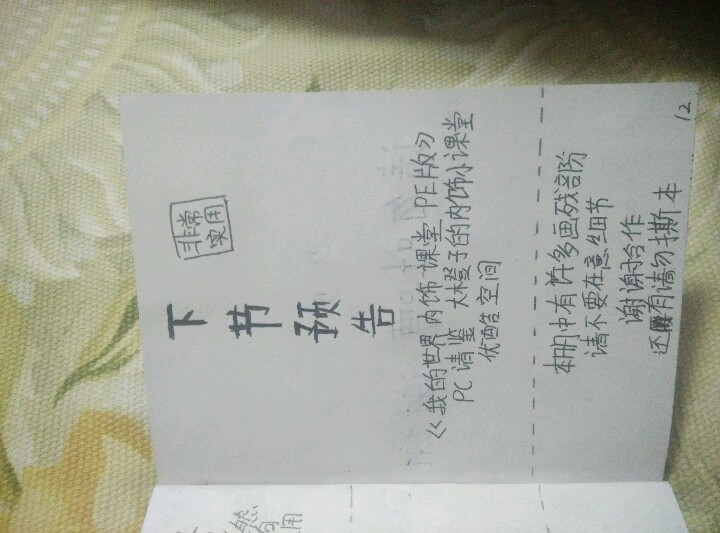 非常
实用
下节预告
《我的世界内饰课堂 PE版》
PC请鉴 大橙子的内饰小课堂
优酷空间
本册中有许多画残部阶
请不要在意细节
谢谢合作
还有请勿撕本
12
然
用